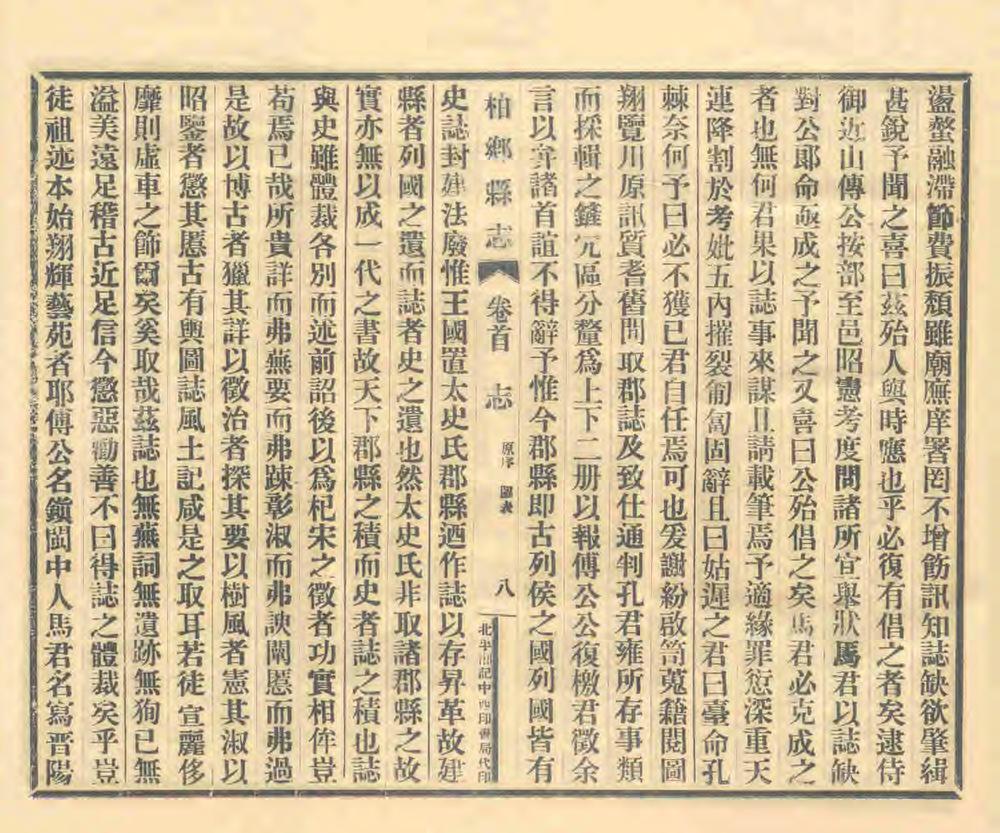 盪螯融滯節費振頹雖廟廡庠署罔不增飭訊知誌缺欲肇緝
甚銳予聞之喜曰茲殆人與時應也乎必復有倡之者矣逮侍
御近山傳公按部至邑昭憲考度間諸所宜舉狀馬君以誌缺
對公郞命亟成之予聞之又喜曰公殆倡之矣馬君必克成之
者也無何君果以誌事來謀且請載筆焉予適緣罪愆深重天
連降割於考妣五內摧裂匍匐固辭且曰姑遲之君曰臺命孔
棘奈何予曰必不獲已君自任焉可也爰謝紛啟笥蒐籍閱圖
翔覽川原訊質耆舊問取郡誌及致仕通判孔君雍所存事類
而採輯之鏟冗區分釐爲上下二册以報傅公公復檄君徵余
言以弁諸首誼不得辭予惟今郡縣即古列侯之國列國皆有
柏鄉縣志 卷首 志 原序 圖表 八 北平 記中西印書局代印
史誌封建法廢惟王國置太史氏郡縣迺作誌以存昇革故建
縣者列國之遺而誌者史之遺也然太史氏非取諸郡縣之故
實亦無以成一代之書故天下郡縣之積而史者誌之積也誌
與史雖體裁各別而述前詔後以爲杞宋之徵者功實相侔豈
苟焉已哉所貴詳而弗蕪要而弗踈彰淑而弗諛闡慝而弗過
是故以博古者獵其詳以徵治者探其要以樹風者憲其淑以
昭鑒者懲其慝古有輿圖誌風土記咸是之取耳若徒宣麗侈
靡則虛車之節爾矣奚取哉茲誌也無蕪詞無遺跡無狥已無
溢美遠足稽古近足信今懲惡勸善不曰得誌之體裁矣乎豈
徒祖述本始翔輝藝苑者耶傅公名鎭閩中人馬君名寫晋陽